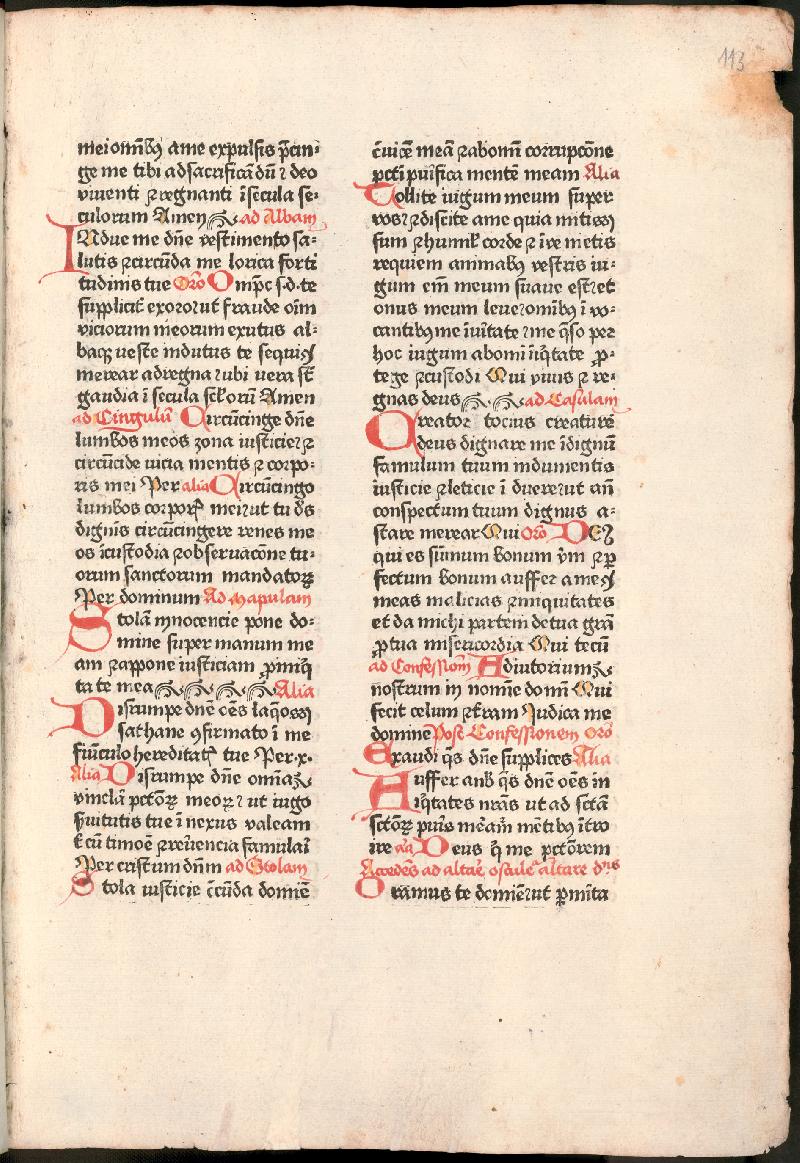 113
mei om̄ibꝰ a me expulsis p̄cin⸗
ge me tibi ad sacrificādū ⁊ deo
viventi ⁊ regnanti ī secula se⸗
culorum Amen ad Albam
INdue me dn̄e vestimento sa⸗
lutis ⁊ circūda me lorica forti
tudinis tue Oro Omp̄c s.d. te
supplicit̄ exoro ⁊ ut fraude oīm
viciorum meorum exutus al⸗
baqꝫ veste indutus te sequi ⁊
merear ad regna ⁊ ubi vera st̄
gaudia ī secula sclorū Amen
ad Cingulū Circūcinge dn̄e
lumbos meos zona iusticie ⁊ ⁊
circūcide vicia mentis ⁊ corpo⸗
ris mei Per alia Circūcingo
lumbos corporꝭ mei ⁊ ut tu ds̄
dignis circūcingere renes me
os ī custodia ⁊ observacōne tu⸗
orum sanctorum mandatorꝝ
Per dominum Ad mapulam
Stolā innocencie pone do⸗
mine super manum me
am ⁊ appone iusticiam ꝓ iniq̄
tate mea Alia
Disrumpe dn̄e oēs laq̄os
sathane ꝯfirmato ī me
funiculo hereditatꝭ tue Per.x.
Alia Disrumpe dn̄e omnia
vincla pctōrꝝ meorꝝ ⁊ ut iugo
s̄vitutis tue ī nexus valeam
t̄ cū timōe ⁊ reverēcia famulai
Per cristum dn̄m ad Stolam
Stola iusticie c̄cūda domiē
c̄vicē meā ⁊ ab omni corrupcōne
pcti purifica mentē meam Alia
Tollite iugum meum super
vos ⁊ discite a me quia mitis
sum ⁊ humil̄ corde ⁊ īve nietis
requiem animabꝰ vestris iu⸗
gum em̄ meum suave est ⁊ et
onus meum leve omībꝰ ī vo⸗
cantibꝰ me īvitate ⁊ me q̄so per
hoc iugum ab omi īiq̄tate ꝓ⸗
tege ⁊ custodi Qui vivis ⁊ re⸗
gnas deus ad Casulam
Creator tocius creature
deus dignare me īdignū
famulum tuum indumentis
iusticie ⁊ leticie ī duere ⁊ ut an̄
conspectum tuum dignus a⸗
stare merear Qui Oro DEꝰ
qui es sūmum bonum vm̄ ⁊ ꝑ
fectum bonum auffer a me
meas malicias ⁊ iniquitates
et da michi partem de tua grā
ꝓ tua misericordia Qui tecū
ad Confessiom Adiutorium
nostrum in nomine domi Qui
fecit celum ⁊ t̄ram Judica me
domine Post Confessionem Oro
Exaudi q̄s dn̄e supplices Alia
Auffer a nob̄ q̄s dn̄e oēs in
iq̄tates nr̄as ut ad sctā
sctōrꝝ puris meām mētibꝰ ītro
ire aīa Deus q̄ me pctōrem
Accedēs ad altar̄ oscule altare dr̄s
Oramus te domīe ⁊ ut ꝑ mīta